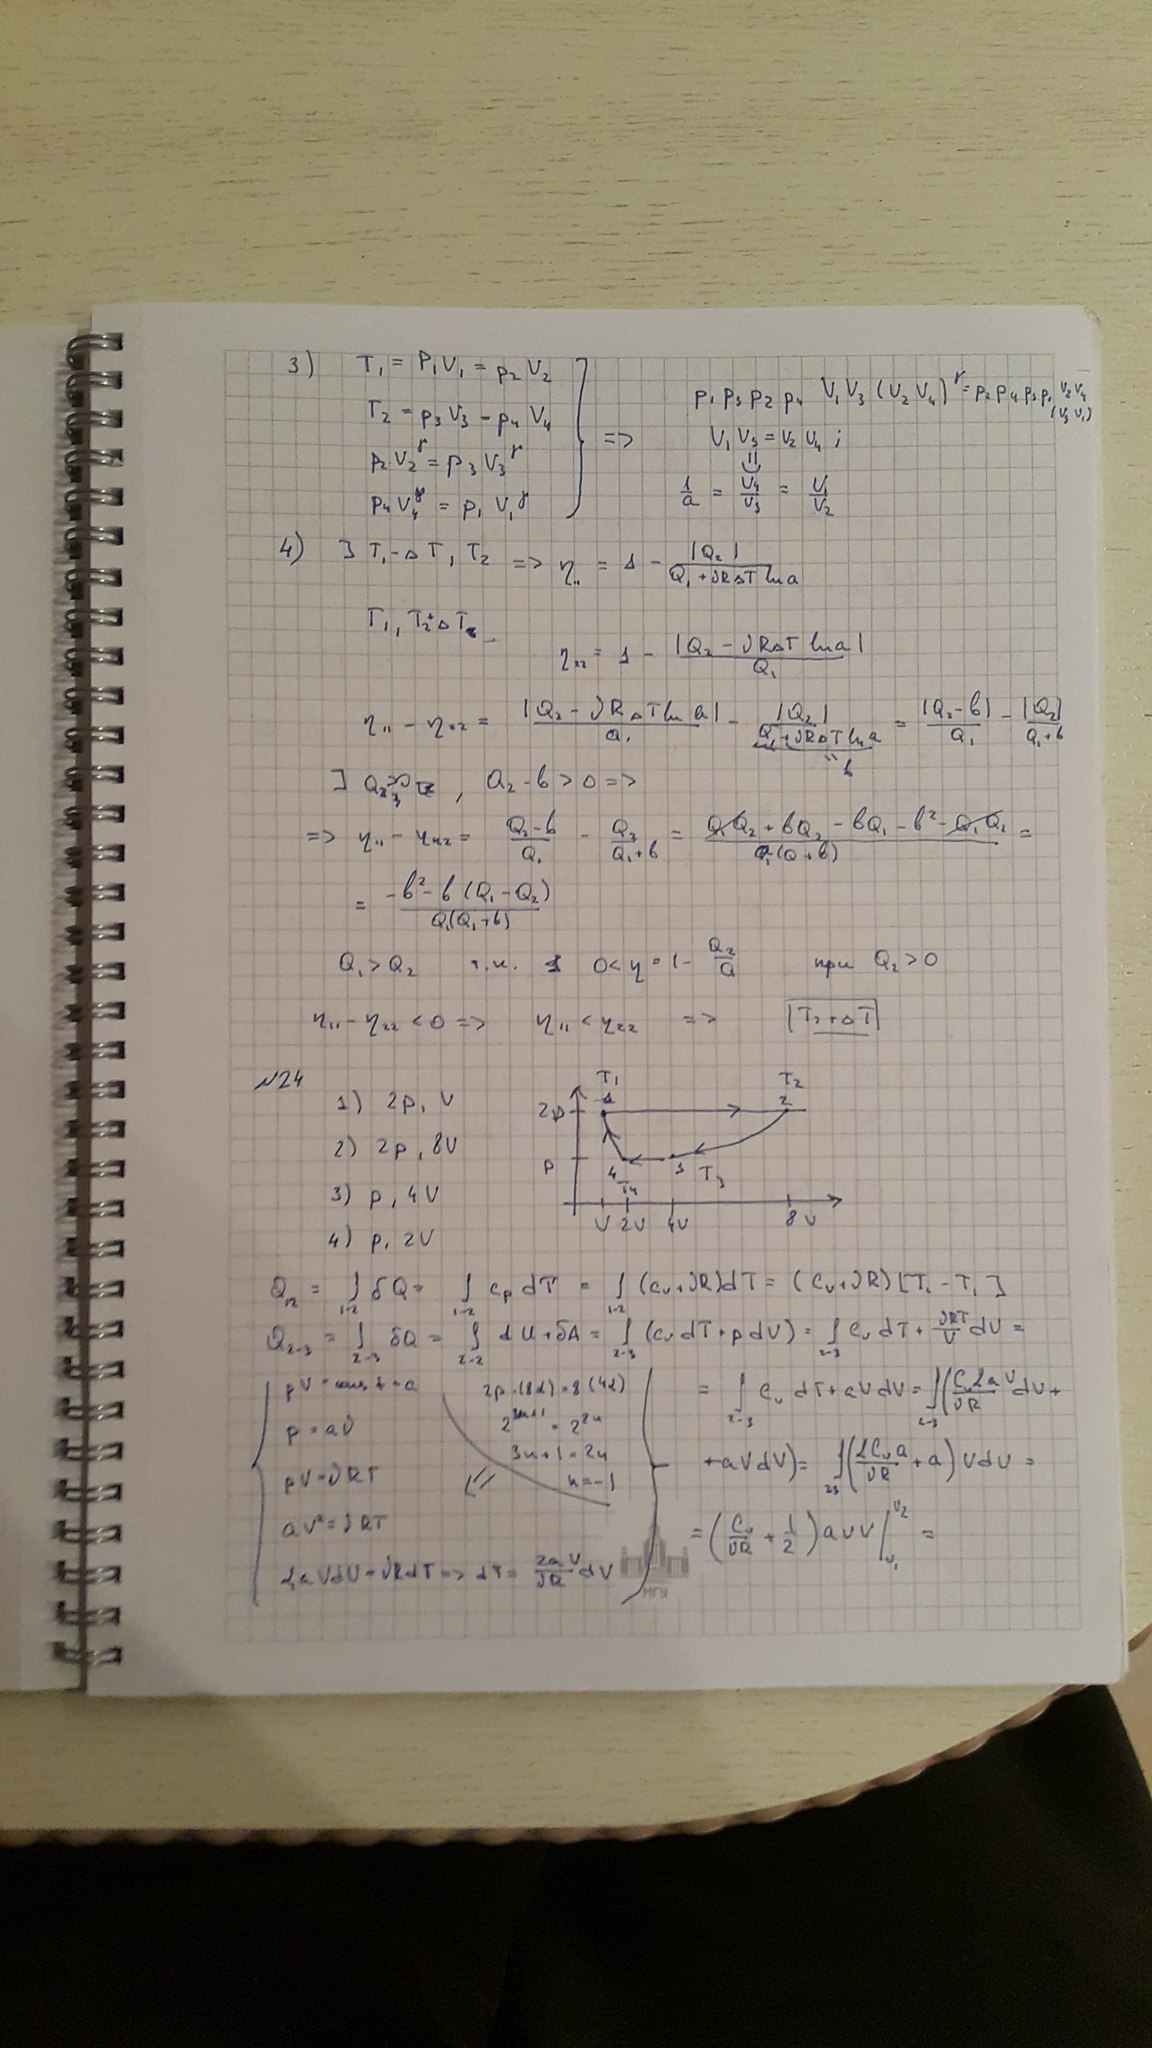 3) T₁ = P₁V₁ = p₂V₂
T₂ = p₃V₃ - p₄V₄
p₂V₂^γ = p₃V₃^γ
p₄V₄^γ = p₁V₁^γ
=> p₁p₃p₂p₄ V₁V₃(V₂V₄)^γ = p₂p₄p₃p₁ V₂V₄(V₃V₁)
V₁V₃ = V₂V₄ ;
1/a = V₄/V₃ = V₁/V₂
4) ∃ T₁ - ΔT, T₂ => η₁₁ = 1 - |Q₂|/(Q₁ + νRΔT ln a)
T₁, T₂ + ΔT
η₂₂ = 1 - |Q₂ - νRΔT ln a|/Q₁
η₁₁ - η₂₂ = |Q₂ - νRΔT ln a|/Q₁ - |Q₂|/(Q₁ + νRΔT ln a) = |Q₂ - b|/Q₁ - |Q₂|/(Q₁ + b)
b
, Q₂ - b > 0 =>
=> η₁₁ - η₂₂ = (Q₂ - b)/Q₁ - Q₂/(Q₁ + b) = (Q₁Q₂ + bQ₂ - bQ₁ - b² - Q₁Q₂)/(Q₁(Q + b)) =
= (-b² - b(Q₁ - Q₂))/(Q₁(Q₁ + b))
Q₁ > Q₂ т.к. 0 < η = 1 - Q₂/Q при Q₂ > 0
η₁₁ - η₂₂ < 0 => η₁₁ < η₂₂ => T₂ + ΔT
№24
1) 2p, V
2) 2p, 8V
3) p, 4V
4) p, 2V
T₁ T₂
1 2
2p
p
4 3 T₃
T₄
V 2V 4V 8V
Q₁₂ = ∫₁₋₂ δQ = ∫₁₋₂ c_p dT = ∫₁₋₂ (c_v + νR)dT = (c_v + νR)[T₂ - T₁]
Q₂₋₃ = ∫₂₋₃ δQ = ∫₂₋₃ dU + δA = ∫₂₋₃ (c_v dT + p dV) = ∫₂₋₃ c_v dT + νRT/V dV =
pV⁻¹ = const = a
p = aV
pV = νRT
aV² = νRT
2aVdV = νRdT => dT = 2aV/νR dV
3n + 1 = 2n
n = -1
= ∫₂₋₃ c_v dT + aVdV = ∫₂₋₃ (c_v 2aV/νR dV +
+ aVdV) = ∫₂₃ (2c_v a/νR + a) VdV =
= (c_v/νR + 1/2) aVV |_{V₁}^{V₂} =
МГУ